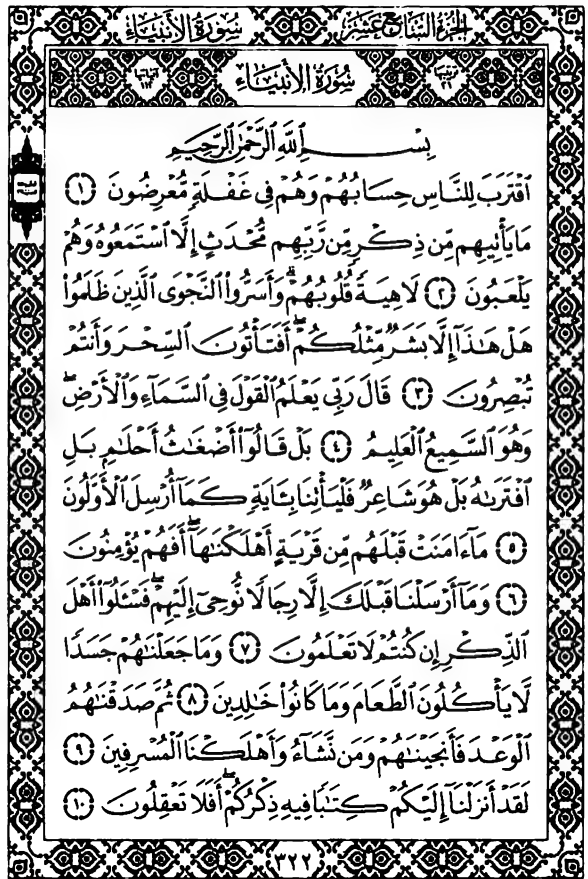 الجزء السابع عشر سورة الأنبياء
سُورَةُ الأَنبِيَاء
بِسْمِ ٱللَّهِ ٱلرَّحْمَٰنِ ٱلرَّحِيمِ
ٱقْتَرَبَ لِلنَّاسِ حِسَابُهُمْ وَهُمْ فِى غَفْلَةٍ مُّعْرِضُونَ ١
مَا يَأْتِيهِم مِّن ذِكْرٍ مِّن رَّبِّهِم مُّحْدَثٍ إِلَّا ٱسْتَمَعُوهُ وَهُمْ
يَلْعَبُونَ ٢ لَاهِيَةً قُلُوبُهُمْ ۗ وَأَسَرُّوا۟ ٱلنَّجْوَى ٱلَّذِينَ ظَلَمُوا۟
هَلْ هَٰذَآ إِلَّا بَشَرٌ مِّثْلُكُمْ ۖ أَفَتَأْتُونَ ٱلسِّحْرَ وَأَنتُمْ
تُبْصِرُونَ ٣ قَالَ رَبِّى يَعْلَمُ ٱلْقَوْلَ فِى ٱلسَّمَآءِ وَٱلْأَرْضِ ۖ
وَهُوَ ٱلسَّمِيعُ ٱلْعَلِيمُ ٤ بَلْ قَالُوٓا۟ أَضْغَٰثُ أَحْلَٰمٍۭ بَلِ
ٱفْتَرَىٰهُ بَلْ هُوَ شَاعِرٌ فَلْيَأْتِنَا بِـَٔايَةٍ كَمَآ أُرْسِلَ ٱلْأَوَّلُونَ
٥ مَآ ءَامَنَتْ قَبْلَهُم مِّن قَرْيَةٍ أَهْلَكْنَٰهَآ ۖ أَفَهُمْ يُؤْمِنُونَ
٦ وَمَآ أَرْسَلْنَا قَبْلَكَ إِلَّا رِجَالًا نُّوحِىٓ إِلَيْهِمْ ۖ فَسْـَٔلُوٓا۟ أَهْلَ
ٱلذِّكْرِ إِن كُنتُمْ لَا تَعْلَمُونَ ٧ وَمَا جَعَلْنَٰهُمْ جَسَدًا
لَّا يَأْكُلُونَ ٱلطَّعَامَ وَمَا كَانُوا۟ خَٰلِدِينَ ٨ ثُمَّ صَدَقْنَٰهُمُ
ٱلْوَعْدَ فَأَنجَيْنَٰهُمْ وَمَن نَّشَآءُ وَأَهْلَكْنَا ٱلْمُسْرِفِينَ ٩
لَقَدْ أَنزَلْنَآ إِلَيْكُمْ كِتَٰبًا فِيهِ ذِكْرُكُمْ ۖ أَفَلَا تَعْقِلُونَ ١٠
٣٢٢